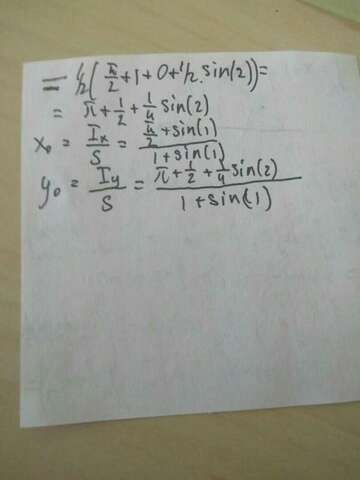 = 1/2(π/2+1+0+1/2·sin(2))=
= π+1/2+1/4 sin(2)
x₀ = Iₓ/S = (π/2+sin(1))/(1+sin(1))
y₀ = I_y/S = (π+1/2+1/4 sin(2))/(1+sin(1))